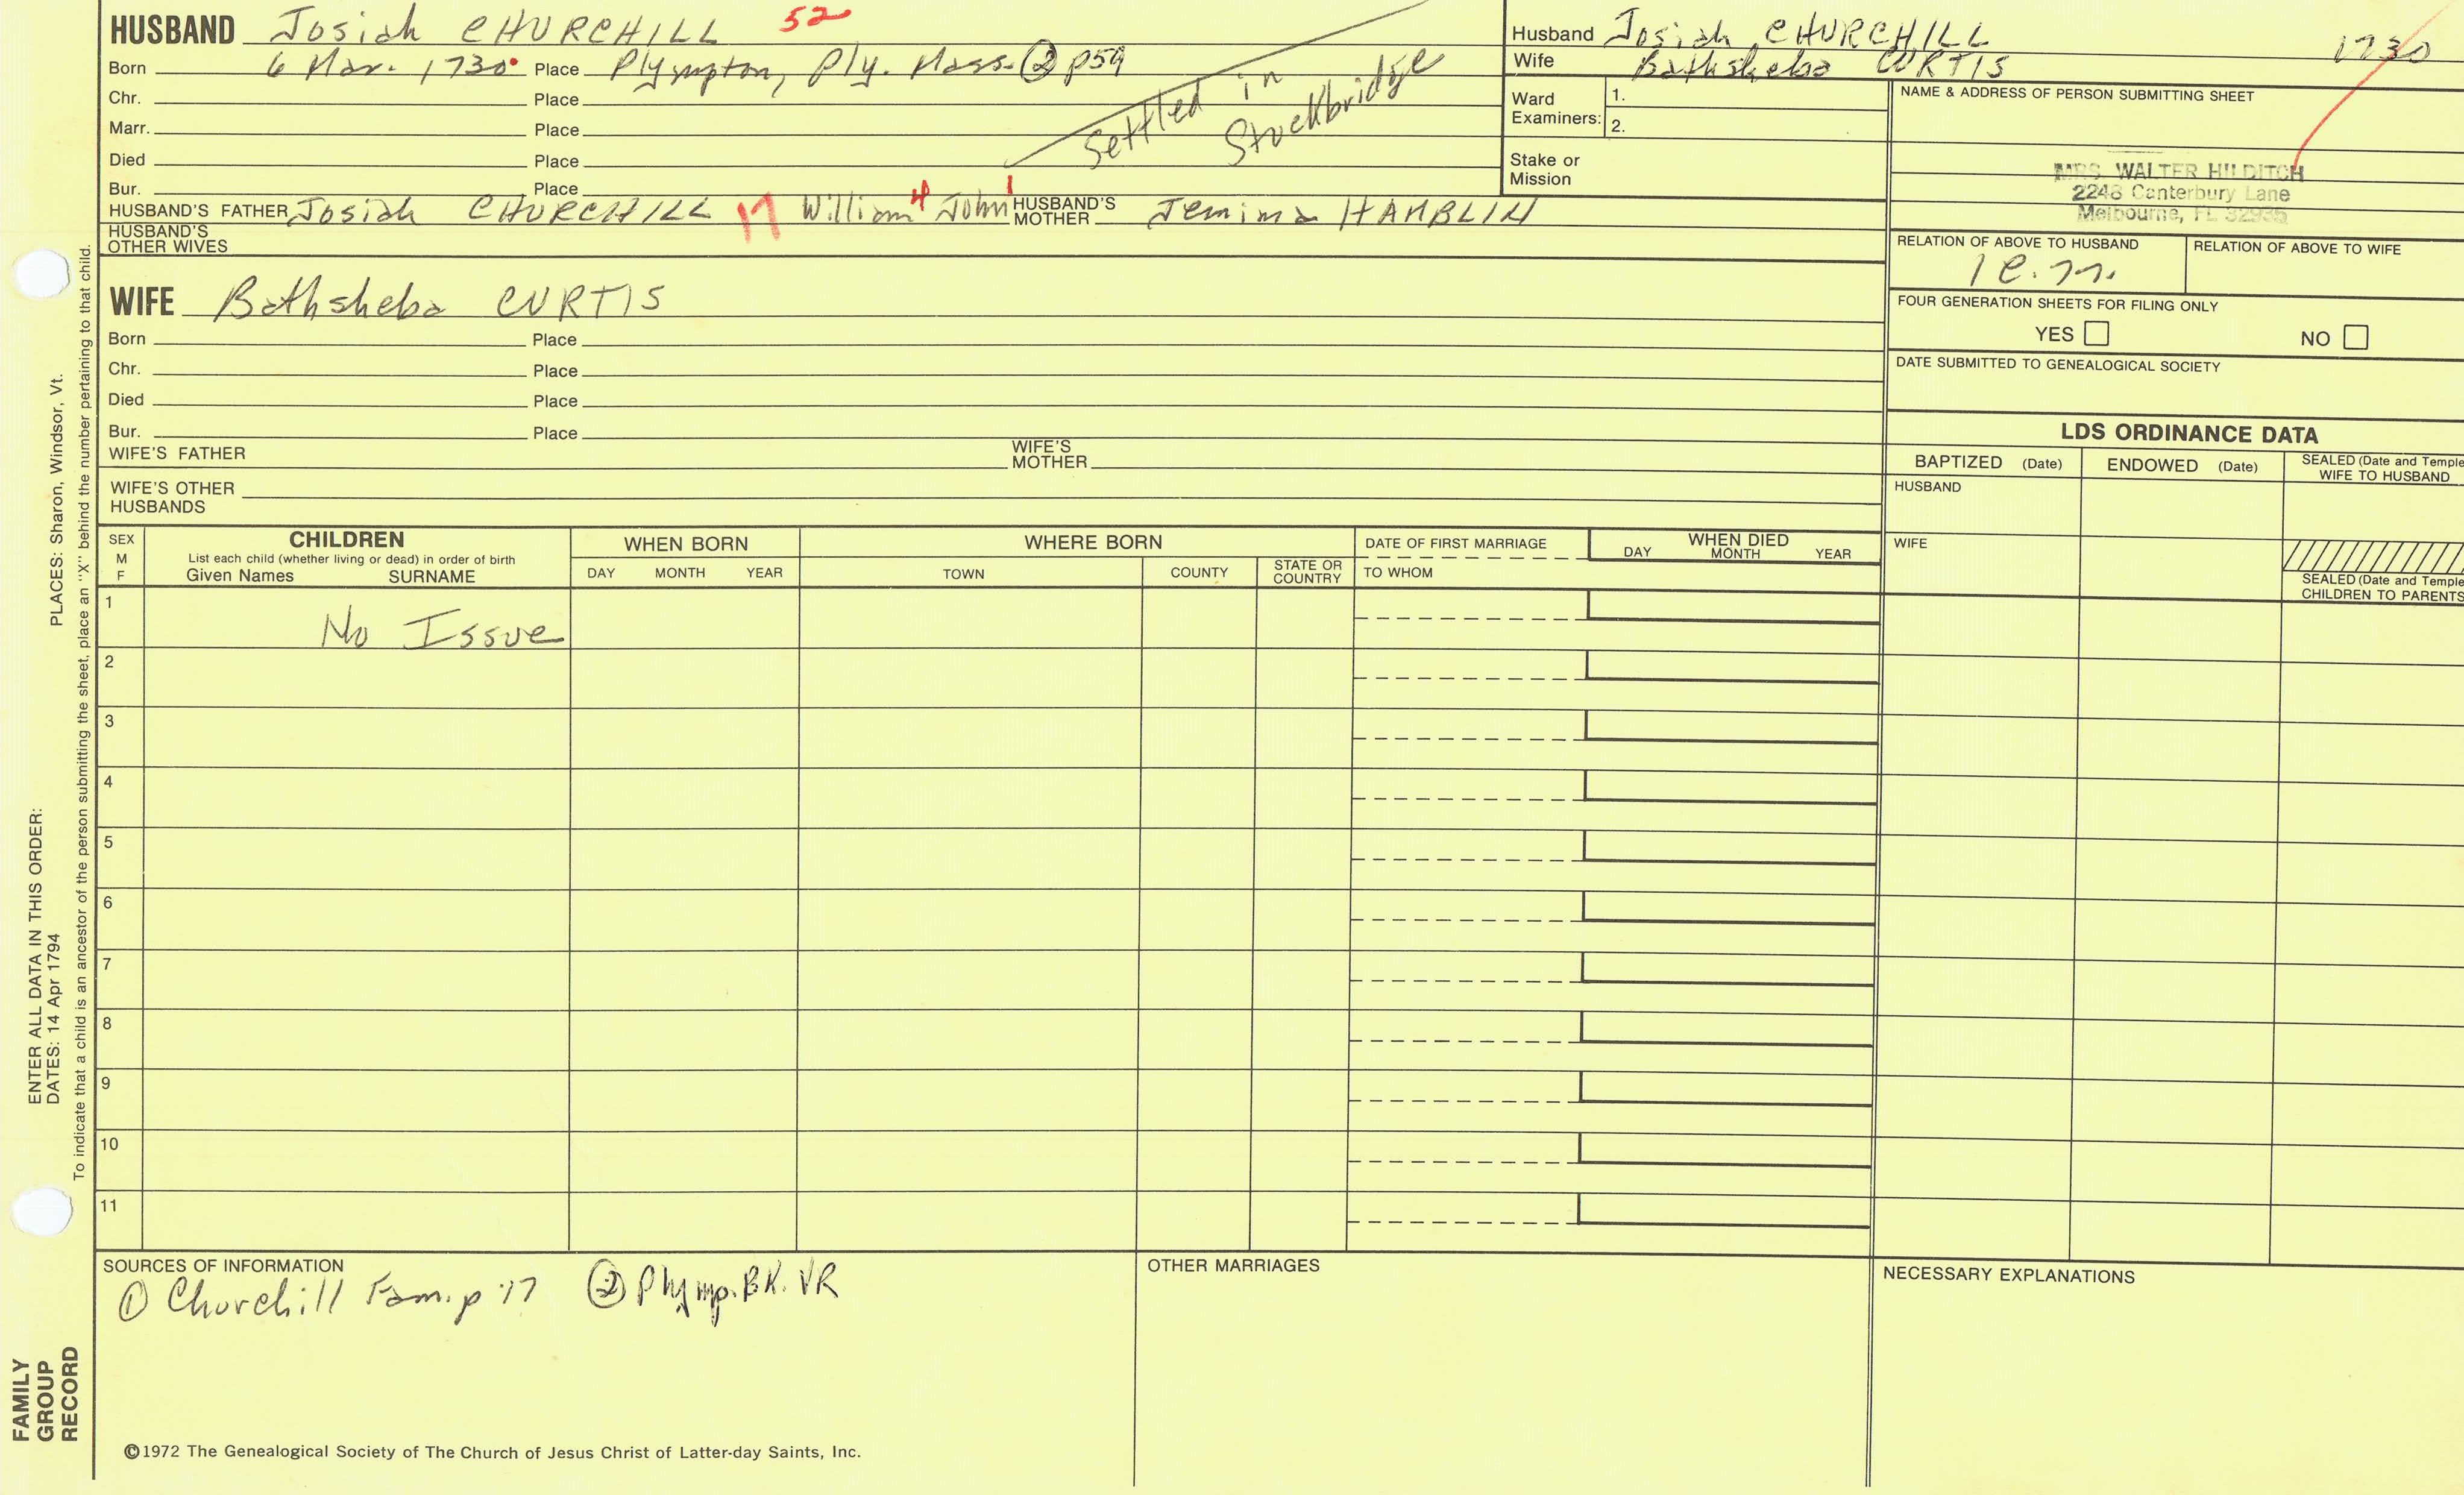 HUSBAND Josiah CHURCHILL 52
Born 6 Mar. 1730 Place Plympton, Ply. Mass. ② p59
Chr. Place
Marr. Place
Died Place
Bur. Place
Settled in
Stockbridge
HUSBAND'S FATHER Josiah CHURCHILL 17 William 4 John 1 HUSBAND'S MOTHER Jemima HAMBLIN
HUSBAND'S
OTHER WIVES
Husband Josiah CHURCHILL 1730
Wife Bathsheba CURTIS
Ward
Examiners:
1.
2.
Stake or
Mission
NAME & ADDRESS OF PERSON SUBMITTING SHEET
MRS. WALTER HILDITCH
2248 Canterbury Lane
Melbourne, FL 32935
RELATION OF ABOVE TO HUSBAND
RELATION OF ABOVE TO WIFE
FOUR GENERATION SHEETS FOR FILING ONLY
YES NO
DATE SUBMITTED TO GENEALOGICAL SOCIETY
WIFE Bathsheba CURTIS
Born Place
Chr. Place
Died Place
Bur. Place
WIFE'S FATHER WIFE'S MOTHER
WIFE'S OTHER
HUSBANDS
LDS ORDINANCE DATA
BAPTIZED (Date) ENDOWED (Date) SEALED (Date and Temple
WIFE TO HUSBAND
HUSBAND
WIFE
SEALED (Date and Temple
CHILDREN TO PARENTS
SEX
M
F
CHILDREN
List each child (whether living or dead) in order of birth
Given Names SURNAME
WHEN BORN
DAY MONTH YEAR
WHERE BORN
TOWN COUNTY STATE OR COUNTRY
DATE OF FIRST MARRIAGE
TO WHOM
WHEN DIED
DAY MONTH YEAR
1 No Issue
2
3
4
5
6
7
8
9
10
11
SOURCES OF INFORMATION
① Churchill Fam. p 17 ② Plymp. BK. VR
OTHER MARRIAGES
NECESSARY EXPLANATIONS
©1972 The Genealogical Society of The Church of Jesus Christ of Latter-day Saints, Inc.
FAMILY
GROUP
RECORD
ENTER ALL DATA IN THIS ORDER:
DATES: 14 Apr 1794 PLACES: Sharon, Windsor, Vt.
To indicate that a child is an ancestor of the person submitting the sheet, place an "X" behind the number pertaining to that child.